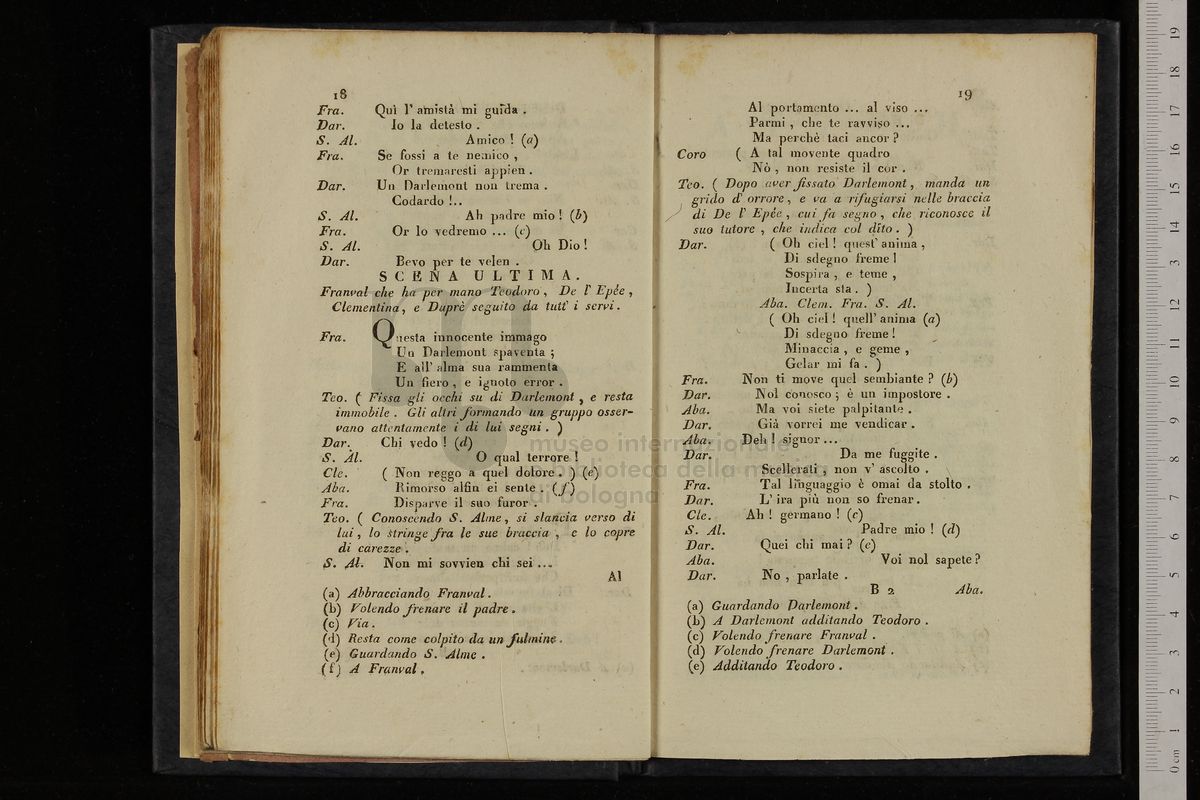 18
Fra. Quì l' amistà mi guida .
Dar. Io la detesto .
S. Al. Amico ! (a)
Fra. Se fossi a te nemico ,
Or tremaresti appien .
Dar. Un Darlemont non trema .
Codardo !..
S. Al. Ah padre mio ! (b)
Fra. Or lo vedremo ... (c)
S. Al. Oh Dio !
Dar. Bevo per te velen .
SCENA ULTIMA.
Franval che ha per mano Teodoro , De l' Epée ,
Clementina, e Duprè seguito da tutt' i servi .
Fra. Questa innocente immago
Un Darlemont spaventa ;
E all' alma sua rammenta
Un fiero , e ignoto error .
Teo. ( Fissa gli occhi su di Darlemont , e resta
immobile . Gli altri formando un gruppo osser-
vano attentamente i di lui segni . )
Dar. Chi vedo ! (d)
S. Al. O qual terrore !
Cle. ( Non reggo a quel dolore . ) (e)
Aba. Rimorso alfin ei sente . (f)
Fra. Disparve il suo furor .
Teo. ( Conoscendo S. Alme, si slancia verso di
lui , lo stringe fra le sue braccia , e lo copre
di carezze .
S. Al. Non mi sovvien chi sei ...
Al
(a) Abbracciando Franval .
(b) Volendo frenare il padre .
(c) Via .
(d) Resta come colpito da un fulmine .
(e) Guardando S. Alme .
(f) A Franval .
19
Al portamento ... al viso ...
Parmi , che te ravviso ...
Ma perchè taci ancor ?
Coro ( A tal movente quadro
Nò , non resiste il cor .
Teo. ( Dopo aver fissato Darlemont , manda un
grido d' orrore , e va a rifugiarsi nelle braccia
di De l' Epée , cui fa segno , che riconosce il
suo tutore , che indica col dito . )
Dar. ( Oh ciel ! quest' anima ,
Di sdegno freme !
Sospira , e teme ,
Incerta sta . )
Aba. Clem. Fra. S. Al.
( Oh ciel ! quell' anima (a)
Di sdegno freme !
Minaccia , e geme ,
Gelar mi fa . )
Fra. Non ti move quel sembiante ? (b)
Dar. Nol conosco ; è un impostore .
Aba. Ma voi siete palpitante .
Dar. Già vorrei me vendicar .
Aba. Deh ! signor ...
Dar. Da me fuggite .
Scellerati , non v' ascolto .
Fra. Tal linguaggio è omai da stolto .
Dar. L' ira più non so frenar .
Cle. Ah ! germano ! (c)
S. Al. Padre mio ! (d)
Dar. Quei chi mai ? (e)
Aba. Voi nol sapete ?
Dar. No , parlate .
B 2 Aba.
(a) Guardando Darlemont .
(b) A Darlemont additando Teodoro .
(c) Volendo frenare Franval .
(d) Volendo frenare Darlemont .
(e) Additando Teodoro .
museo internazionale
e biblioteca della musica
di bologna
0 cm 1 2 3 4 5 6 7 8 9 10 11 12 13 14 15 16 17 18 19